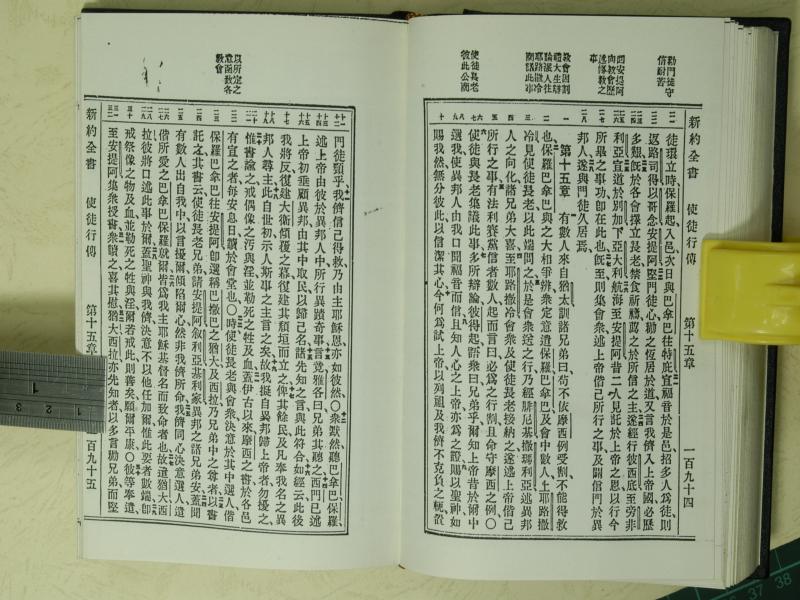 勸門徒守
信耐苦
回安提阿
向教會歷
述傳教之
事
教會因割
禮大生辯
論遣人往
耶路撒冷
商議此事
使徒長老
彼此公商
新約全書 使徒行傳 第十五章 一百九十四
徒環立時保羅起入邑次日與巴拿巴往特庇宣福音於是邑招多人為徒則
返路司得以哥念安提阿堅門徒心勸之恆居於道又言我儕入上帝國必歷
多艱既於各會擇立長老禁食祈禱薦之於所信之主遂經行彼西底至旁非
利亞宣道於別加下亞大利航海至安提阿昔二人見託於上帝之恩以行今
所畢之事功卽在此也旣至則集會衆述上帝偕己所行之事及闢信門於異
邦人遂與門徒久居焉
第十五章 有數人來自猶太訓諸兄弟曰苟不依摩西例受割不能得救
也保羅巴拿巴與之大相爭辨衆定意遣保羅巴拿巴及會中數人上耶路撒
冷見使徒長老以此端問之於是會衆送之行乃經腓尼基撒瑪利亞述異邦
人之向化諸兄弟大喜至耶路撒冷會衆及使徒長老接納之遂述上帝偕己
所行之事有法利賽黨信者數人起而言曰必為之行割且命守摩西之例〇
使徒與長老集議此事多所辯論彼得起語衆曰兄弟乎爾知上帝昔於爾中
選我使異邦人由我口聞福音而信且知人心之上帝亦為之證賜以聖神如
賜我然無分彼此以信潔其心今何為試上帝以列祖及我儕不克負之軛置
以所定之
意函致各
教會
門徒頸乎我儕信己得救乃由主耶穌恩亦如彼然〇衆默然聽巴拿巴保羅
述上帝由彼於異邦人中所行異蹟奇事言竟雅各曰兄弟其聽之西門已述
上帝初垂顧異邦由其中取民以歸己名諸先知之言與此符合如經云此後
我將反復建大衛傾覆之幕復建其頹垣而立之俾其餘民及凡奉我名之異
邦人尋主此自世初示人斯事之主言之矣故我擬自異邦歸上帝者勿擾之
惟書諭之戒偶像之汚與淫並勒死之牲及血蓋伊古以來摩西之書於各邑
有宣之者每安息日讀於會堂也〇時使徒長老與會衆決意於其中選人偕
保羅巴拿巴往安提阿卽選稱巴撒巴之猶大及西拉乃兄弟中之尊者以書
託之其書云使徒長老兄弟請安提阿敘利亞基利家異邦之諸兄弟安蓋聞
有數人出自我中以言擾爾傾陷爾心然非我儕所命我儕同心決意選人遣
偕所愛之巴拿巴保羅就爾皆爲我主耶穌基督名而致命者也故遣猶大西
拉彼將口述此事於爾蓋聖神與我儕決意不以他任加爾惟此要者數端卽
戒祭像之物及血並勒死之牲與淫爾若戒此則善矣願爾平康〇彼等奉遣
至安提阿集衆授書衆讀之喜其慰猶大西拉亦先知者以多言勸兄弟而堅
新約全書 使徒行傳 第十五章
百九十五
1
2
3
37
38